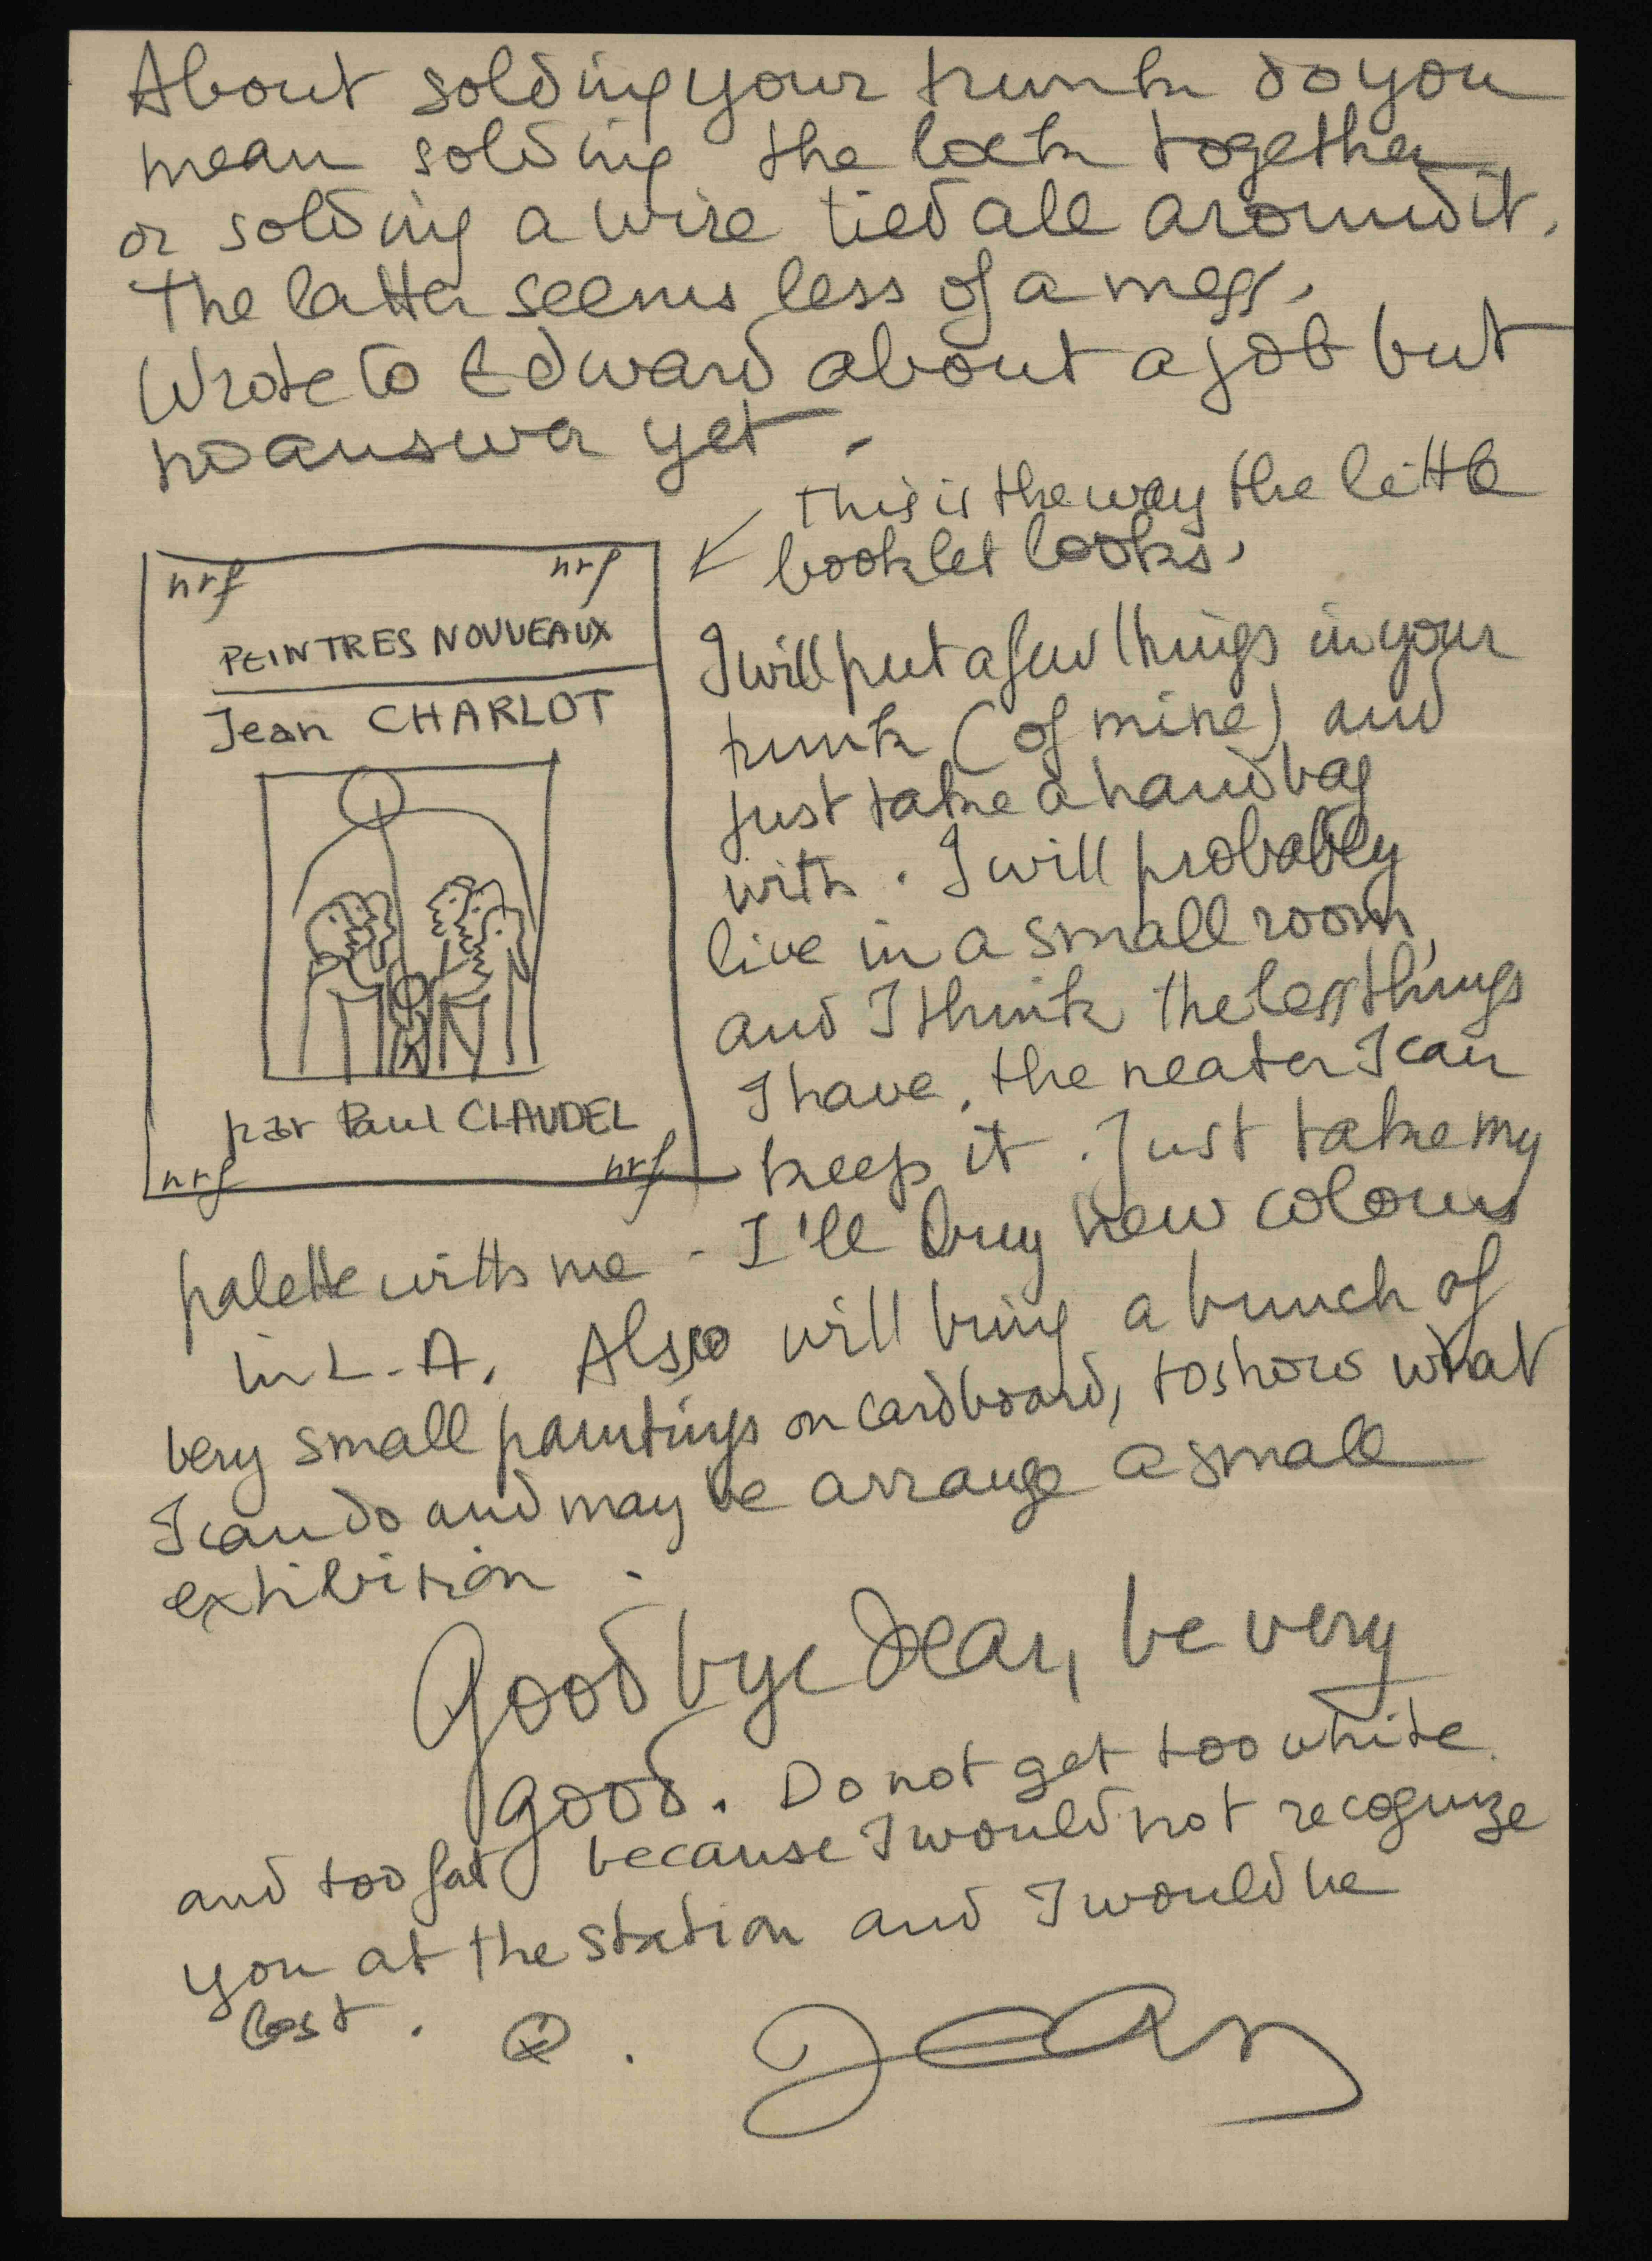 About solding your trunk do you
mean solding the lock together
or solding a wire tied all around it.
The latter seems less of a mess.
Wrote to Edward about a job but
no answer yet.
This is the way the little
booklet looks.
nrf nrf
PEINTRES NOUVEAUX
Jean CHARLOT
par Paul CLAUDEL
nrf nrf
I will put a few things in your
trunk (of mine) and
just take a handbag
with. I will probably
live in a small room,
and I think the less things
I have, the neater I can
keep it. Just take my
palette with me - I'll buy new colours
in L.A. Also will bring a bunch of
very small paintings on cardboard, to show what
I can do and may be arrange a small
exhibition.
Good bye Dear, be very
good. Do not get too white
and too fat because I would not recognize
you at the station and I would be
lost.
Jean